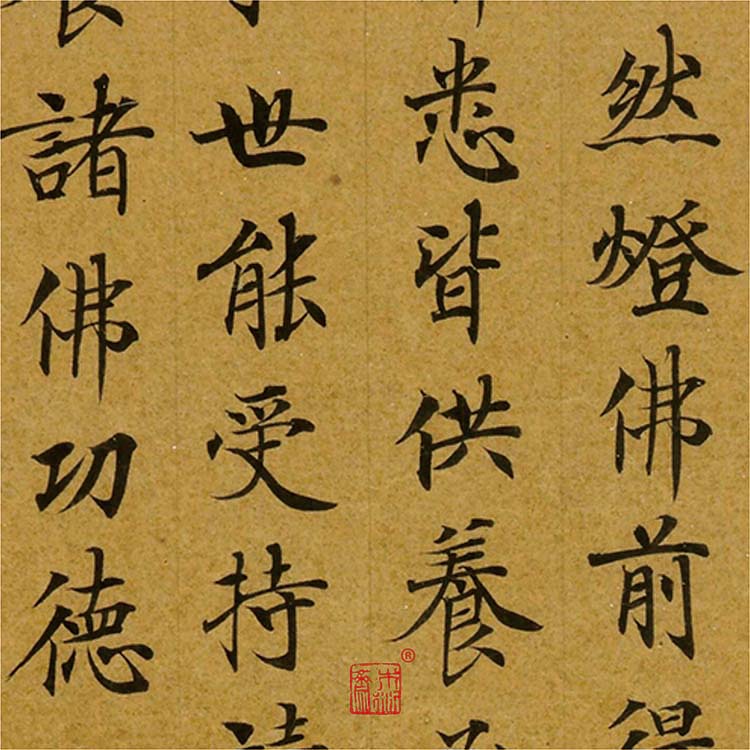 然燈佛前得
悉皆供養
世能受持
諸佛功德
®